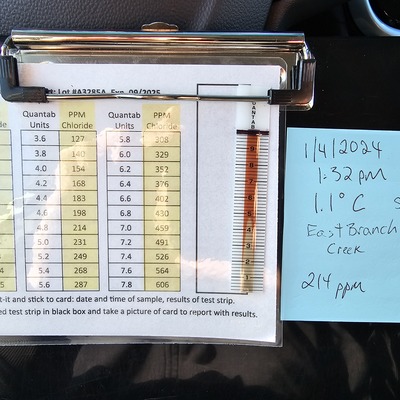 Lot #A3285A Exp. 09/2025
Quantab Units PPM Chloride Quantab Units PPM Chloride
3.6 127 5.8 308
3.8 140 6.0 329
4.0 154 6.2 352
4.2 168 6.4 376
4.4 183 6.6 402
4.6 198 6.8 430
4.8 214 7.0 459
5.0 231 7.2 491
5.2 249 7.4 526
5.4 268 7.6 564
5.6 287 7.8 606
t-it and stick to card: date and time of sample, results of test strip.
ed test strip in black box and take a picture of card to report with results.
QUANTAB
9
8
7
6
5
4
3
2
1
1/4/2024
1:32 pm
1.1° C
East Branch
Creek
214 ppm